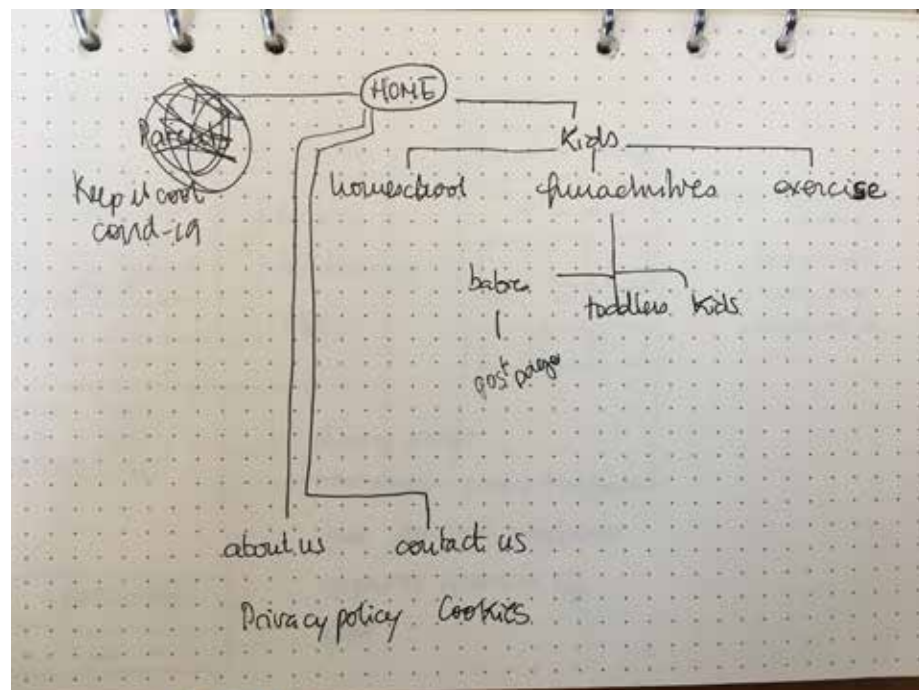 HOME
Parents
Kids
Keep it cool
covid-19
homeschool
funactivities
exercise
babies
toddlers
kids
post page
about us
contact us
Privacy policy
Cookies